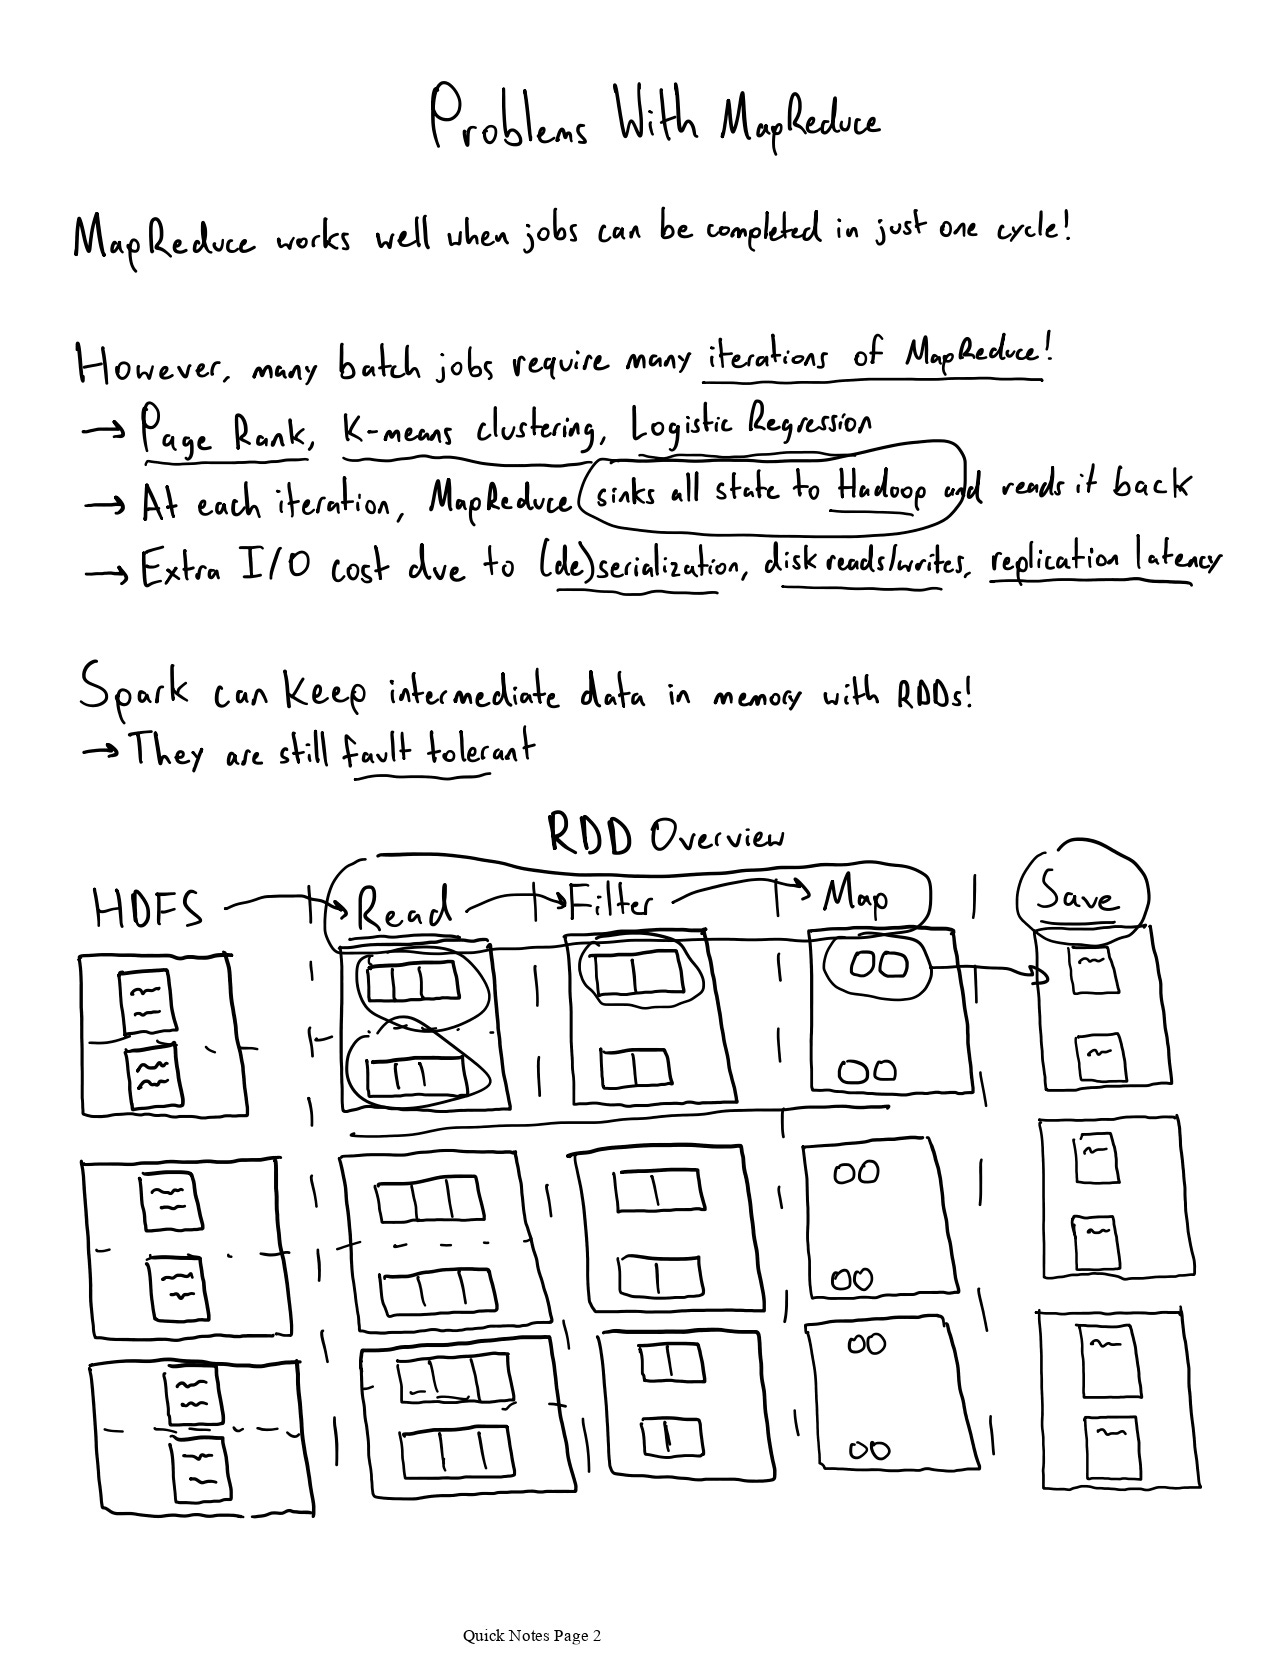 Problems With MapReduce
MapReduce works well when jobs can be completed in just one cycle!
However, many batch jobs require many iterations of MapReduce!
→ Page Rank, K-means clustering, Logistic Regression
→ At each iteration, MapReduce sinks all state to Hadoop and reads it back
→ Extra I/O cost due to (de)serialization, disk reads/writes, replication latency
Spark can keep intermediate data in memory with RDDs!
→ They are still fault tolerant
RDD Overview
HDFS Read Filter Map Save
Quick Notes Page 2